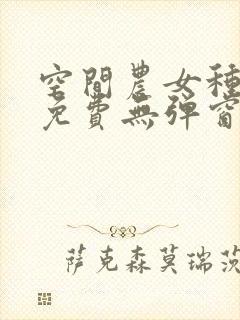 空間農女種
免費無彈窗
萨克森莫瑞茨